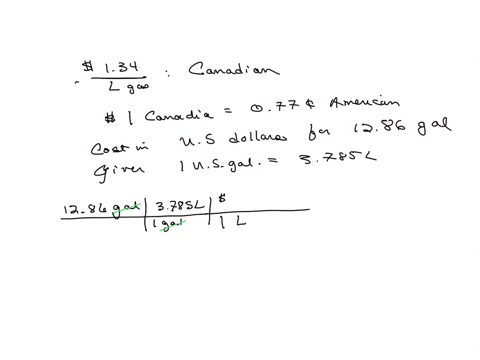 $ 1.34 : Canadian
L gas
$ 1 Canadia = 0.77 ¢ American
Cost in U.S dollares for 12.86 gal
Given 1 U.S. gal. = 3.785L
12.86 gal 3.785L $
1 gal 1 L